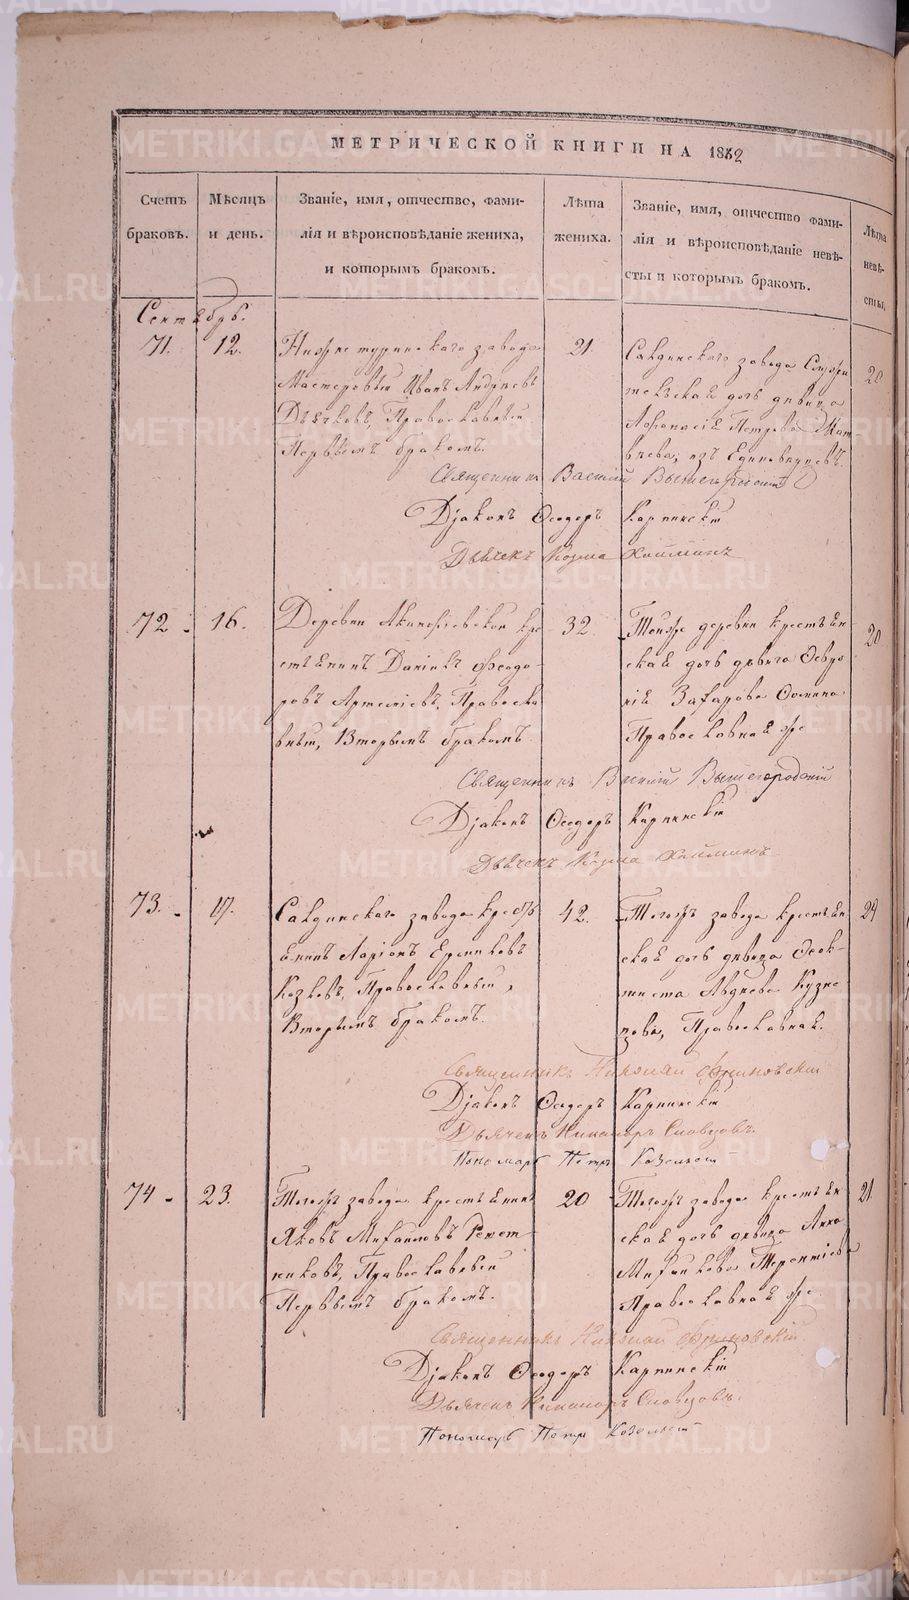 МЕТРИЧЕСКОЙ КНИГИ НА 1852
Счетъ браковъ.
Мѣсяцъ и день.
Званіе, имя, отчество, фами-
лія и вѣроисповѣданіе жениха,
и которымъ бракомъ.
Лѣта жениха.
Званіе, имя, отчество фами-
лія и вѣроисповѣданіе невѣ-
сты и которымъ бракомъ.
Лѣта невѣ-
сты.
Сентябрь.
71. 12.
Нижнетуринскаго завода
Мастеровый Иванъ Андреевъ
Дьячковъ, Православный
Первымъ бракомъ.
21.
Салдинскаго завода
дочь дѣвица
Петрова
изъ Единовѣрцевъ.
20
Священникъ Василій Вышегородскій
Діаконъ Ѳеодоръ Карпинскій
Дьячекъ Козма Хайминъ
72. 16.
Деревни Акинфіевской кре-
стьянинъ Даніилъ Ѳеодо-
ровъ Артеміевъ, Православ
вный, Вторымъ бракомъ.
32.
Тойже деревни крестьян-
ская дочь дѣвица Евдо-
кія Захарова
Православная же
20
Священникъ Василій Вышегородскій
Діаконъ Ѳеодоръ Карпинскій
Дьячекъ Козма Хайминъ
73. 17.
Салдинскаго завода кресть
янинъ Ларіонъ Ермиловъ
Козловъ, Православный,
Вторымъ бракомъ.
42.
Тогожъ завода крестьян-
ская дочь дѣвица Ѳеок-
тиста Авдѣева Кузне
цова, Православная.
24
Священникъ Николай Фриновскій
Діаконъ Ѳеодоръ Карпинскій
Дьячекъ Никаноръ Словцовъ.
Пономарь Петръ
74. 23.
Тогожъ завода крестьянинъ
Яковъ Михаиловъ Решет-
никовъ, Православный
Первымъ бракомъ.
20
Тогожъ завода крестьян-
ская дочь дѣвица Анна
Михайлова Терентіева
Православная же
21
Священникъ Николай Фриновскій
Діаконъ Ѳеодоръ Карпинскій
Дьячекъ Никаноръ Словцовъ.
Пономарь Петръ
METRIKI.GASO-URAL.RU